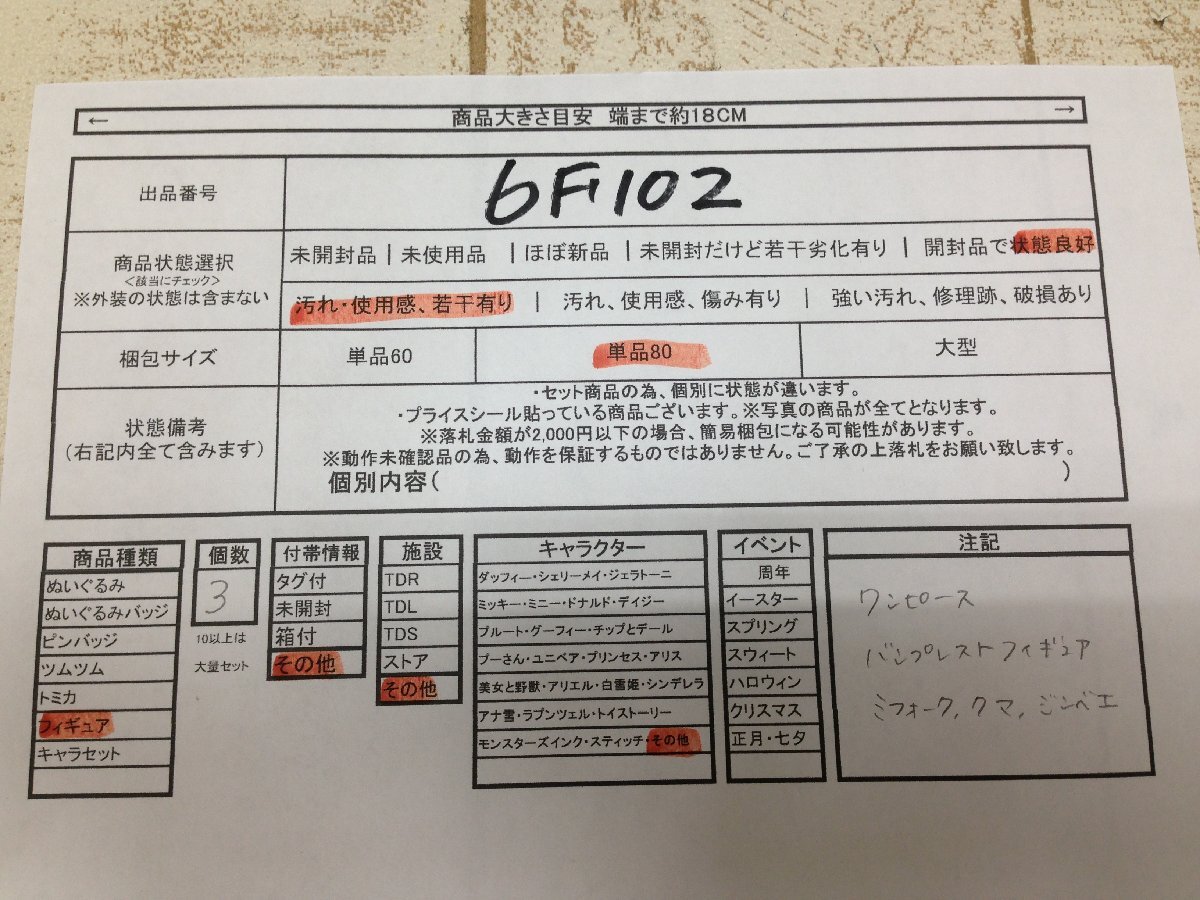 ← 商品大きさ目安 端まで約18CM →
出品番号 6F102
商品状態選択
<該当にチェック>
※外装の状態は含まない
未開封品 | 未使用品 | ほぼ新品 | 未開封だけど若干劣化有り | 開封品で状態良好
汚れ・使用感、若干有り | 汚れ、使用感、傷み有り | 強い汚れ、修理跡、破損あり
梱包サイズ 単品60 単品80 大型
状態備考
(右記内全て含みます)
・セット商品の為、個別に状態が違います。
・プライスシール貼っている商品ございます。※写真の商品が全てとなります。
※落札金額が2,000円以下の場合、簡易梱包になる可能性があります。
※動作未確認品の為、動作を保証するものではありません。ご了承の上落札をお願い致します。
個別内容( )
商品種類
ぬいぐるみ
ぬいぐるみバッジ
ピンバッジ
ツムツム
トミカ
フィギュア
キャラセット
個数
3
10以上は
大量セット
付帯情報
タグ付
未開封
箱付
その他
施設
TDR
TDL
TDS
ストア
その他
キャラクター
ダッフィー・シェリーメイ・ジェラトーニ
ミッキー・ミニー・ドナルド・デイジー
プルート・グーフィー・チップとデール
プーさん・ユニベア・プリンセス・アリス
美女と野獣・アリエル・白雪姫・シンデレラ
アナ雪・ラプンツェル・トイストーリー
モンスターズインク・スティッチ・その他
イベント
周年
イースター
スプリング
スウィート
ハロウィン
クリスマス
正月・七夕
注記
ワンピース
バンプレストフィギュア
ミフォーク, クマ, ジンベエ